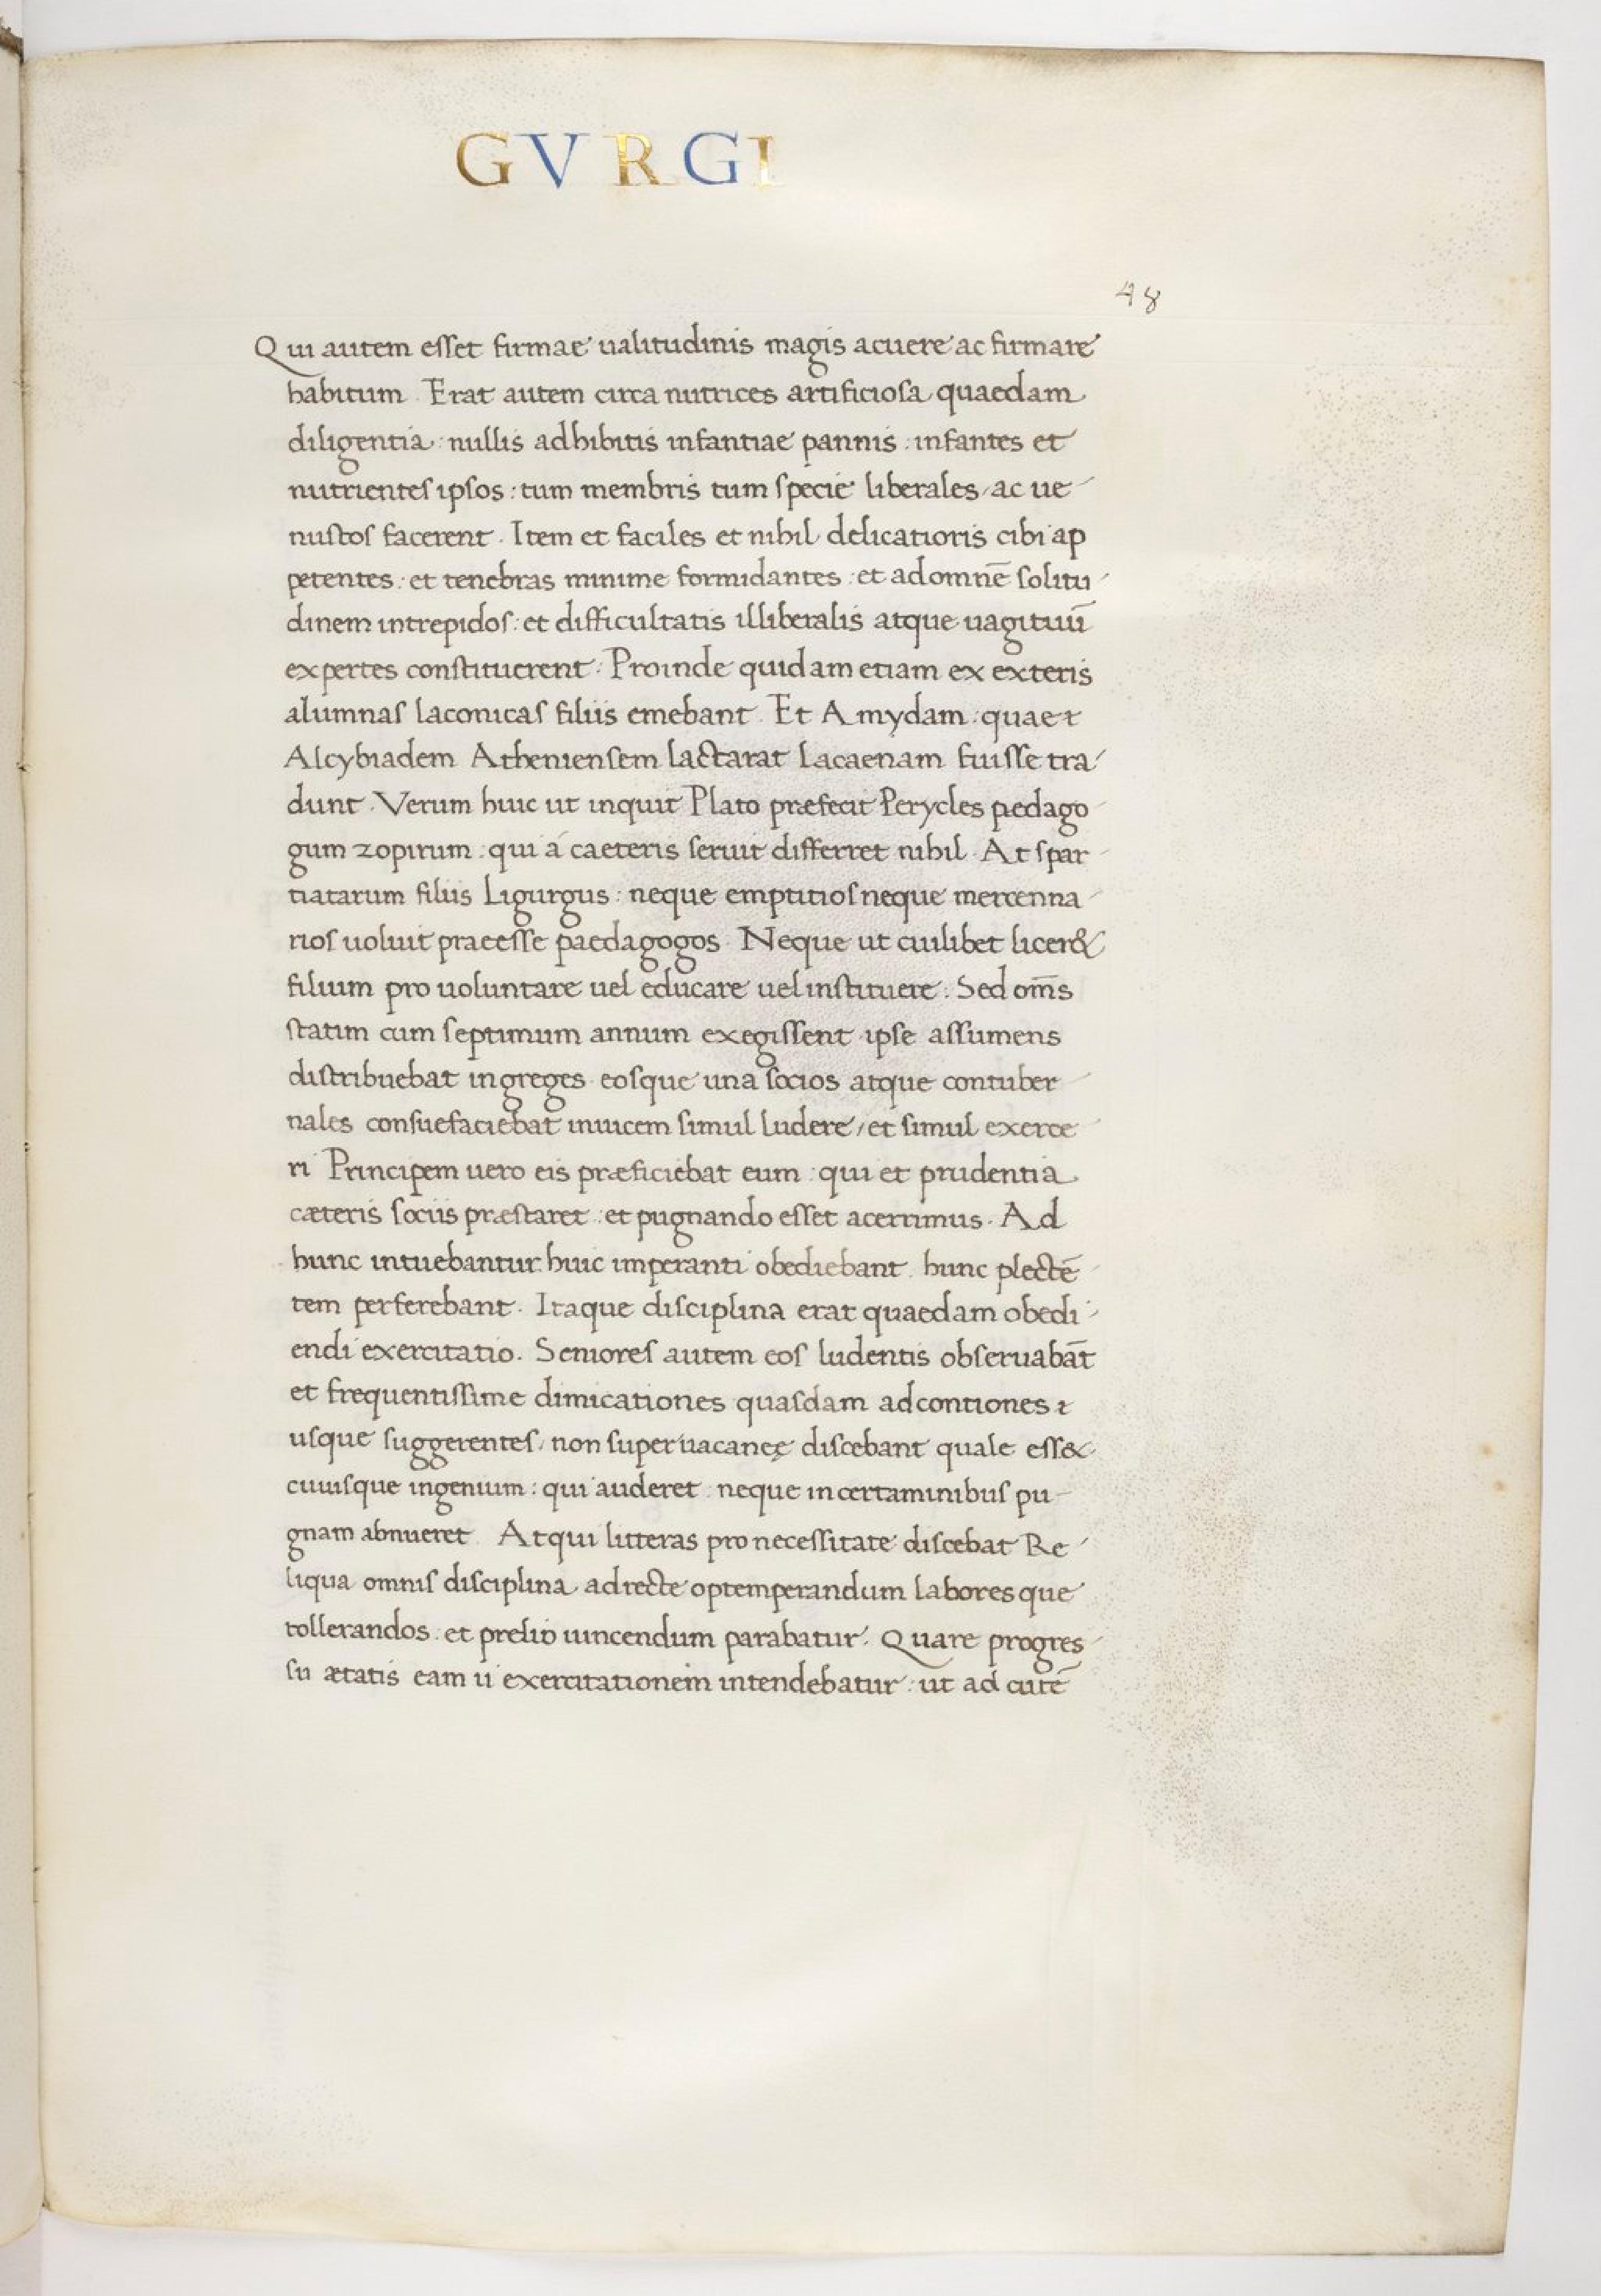 GVRGI
48
Qui autem esset firmae ualitudinis magis acuere ac firmare
habitum. Erat autem circa nutrices artificiosa quaedam
diligentia: nullis adhibitis infantiae pannis: infantes et
nutrientes ipsos: tum membris tum specie liberales, ac ue-
nustos facerent. Item et faciles et nihil delicatioris cibi ap
petentes: et tenebras minime formidantes: et ad omnē solitu-
dinem intrepidos: et difficultatis illiberalis atque uagituū
expertes constituerent: Proinde quidam etiam ex exteris
alumnas laconicas filiis emebant. Et Amydam: quae &
Alcybiadem Atheniensem lactarat Lacaenam fuisse tra-
dunt. Verum huic ut inquit Plato præfecit Perycles pedago-
gum zopirum: qui á caeteris seruit differret nihil. At spar-
tiatarum filiis Ligurgus: neque emptitios neque mercenna-
rios uoluit praeesse paedagogos. Neque ut cuilibet licer&
filium pro uoluntare uel educare uel instituere. Sed om̄s
statim cum septimum annum exegissent ipse assumens
distribuebat in greges eosque una socios atque contuber-
nales consuefaciebat inuicem simul ludere, et simul exerce-
ri Principem uero eis præficiebat eum: qui et prudentia
cæteris sociis præstaret: et pugnando esset acerrimus. Ad
hunc intuebantur. huic imperanti obediebant. hunc plectē-
tem perferebant. Itaque disciplina erat quaedam obedi-
endi exercitatio. Seniores autem eos ludentis obseruabāt
et frequentissime dimicationes quasdam ad contiones &
usque suggerentes, non superuacanee discebant quale ess&
cuiusque ingenium: qui auderet: neque in certaminibus pu-
gnam abnueret. Atqui litteras pro necessitate discebat Re-
liqua omnis disciplina ad recte optemperandum labores que
tollerandos: et prelio uincendum parabatur. Quare progres-
su ætatis eam ii exercitationem intendebatur: ut ad cutē